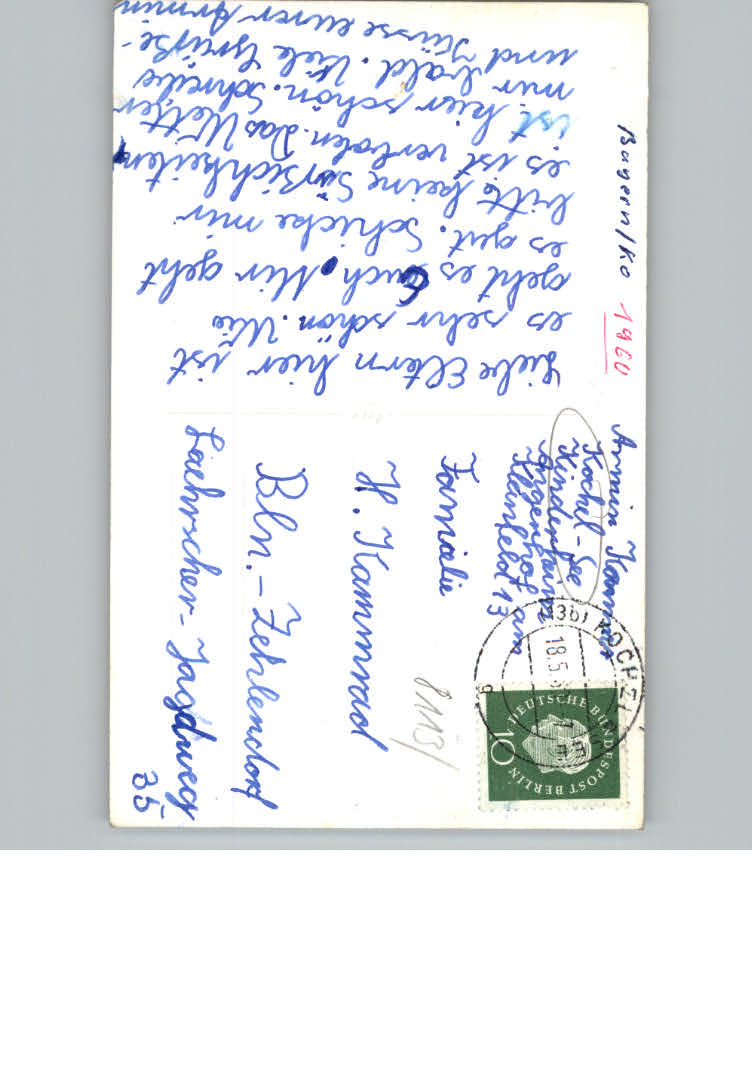 Liebe Eltern hier ist
es sehr schön. Wie
geht es Euch. Mir geht
es gut. Schicke mir
bitte keine Süßichkeiten
es ist verboten. Das Wetter
ist hier schön. Schreibe
mir bald. Viele Grüße-
und Küsse eurer Armin
Bayern/Ko
1960
Armin Kammrad
Kochel-See
Kinderheim
am
Kleinfeld 13
Familie
H. Kammrad
Bln.-Zehlendorf
Laehrscher-Jagdweg
35
8113/
(13b) KOCHEL
18.5.
DEUTSCHE BUNDESPOST BERLIN
10